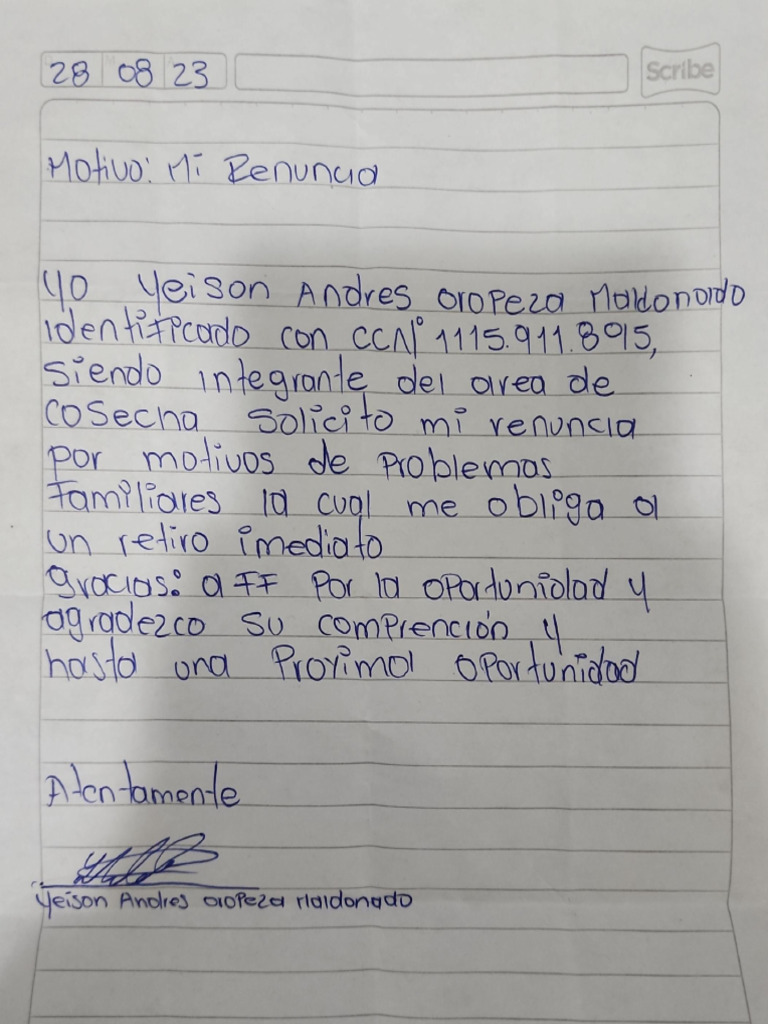 28 08 23
Scribe
Motivo: Mi Renuncia
Yo Yeison Andres oropeza Maldonado
identificado con CCN° 1115.911.895,
siendo integrante del area de
cosecha solicito mi renuncia
por motivos de problemas
familiares la cual me obliga a
un retiro imediato
gracias: a FF por la oportunidad y
agradezco su comprención y
hasta una proxima oportunidad
Atentamente
Yeison Andres oropeza Maldonado